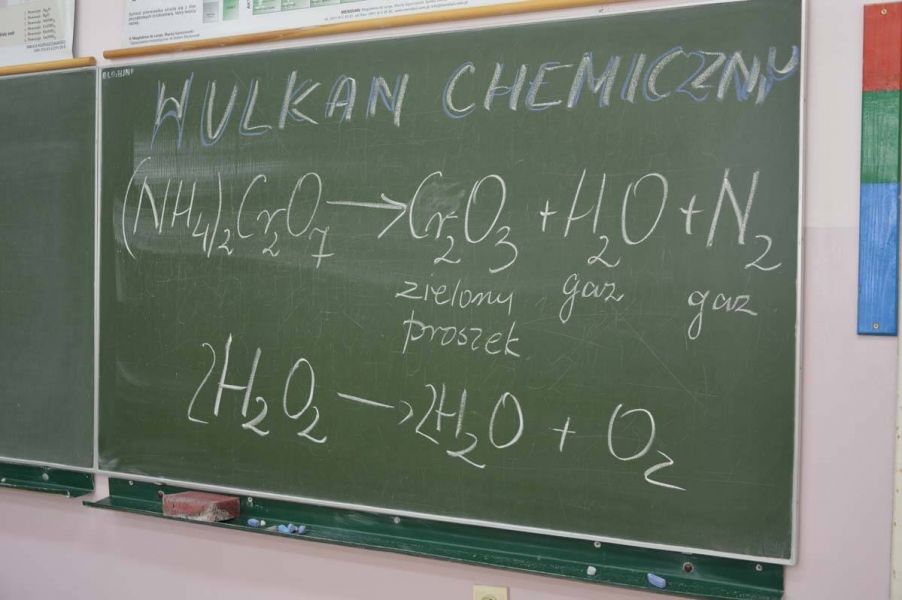 WULKAN CHEMICZNY
(NH₄)₂Cr₂O₇ → Cr₂O₃ + H₂O + N₂
zielony proszek gaz gaz
2H₂O₂ → 2H₂O + O₂